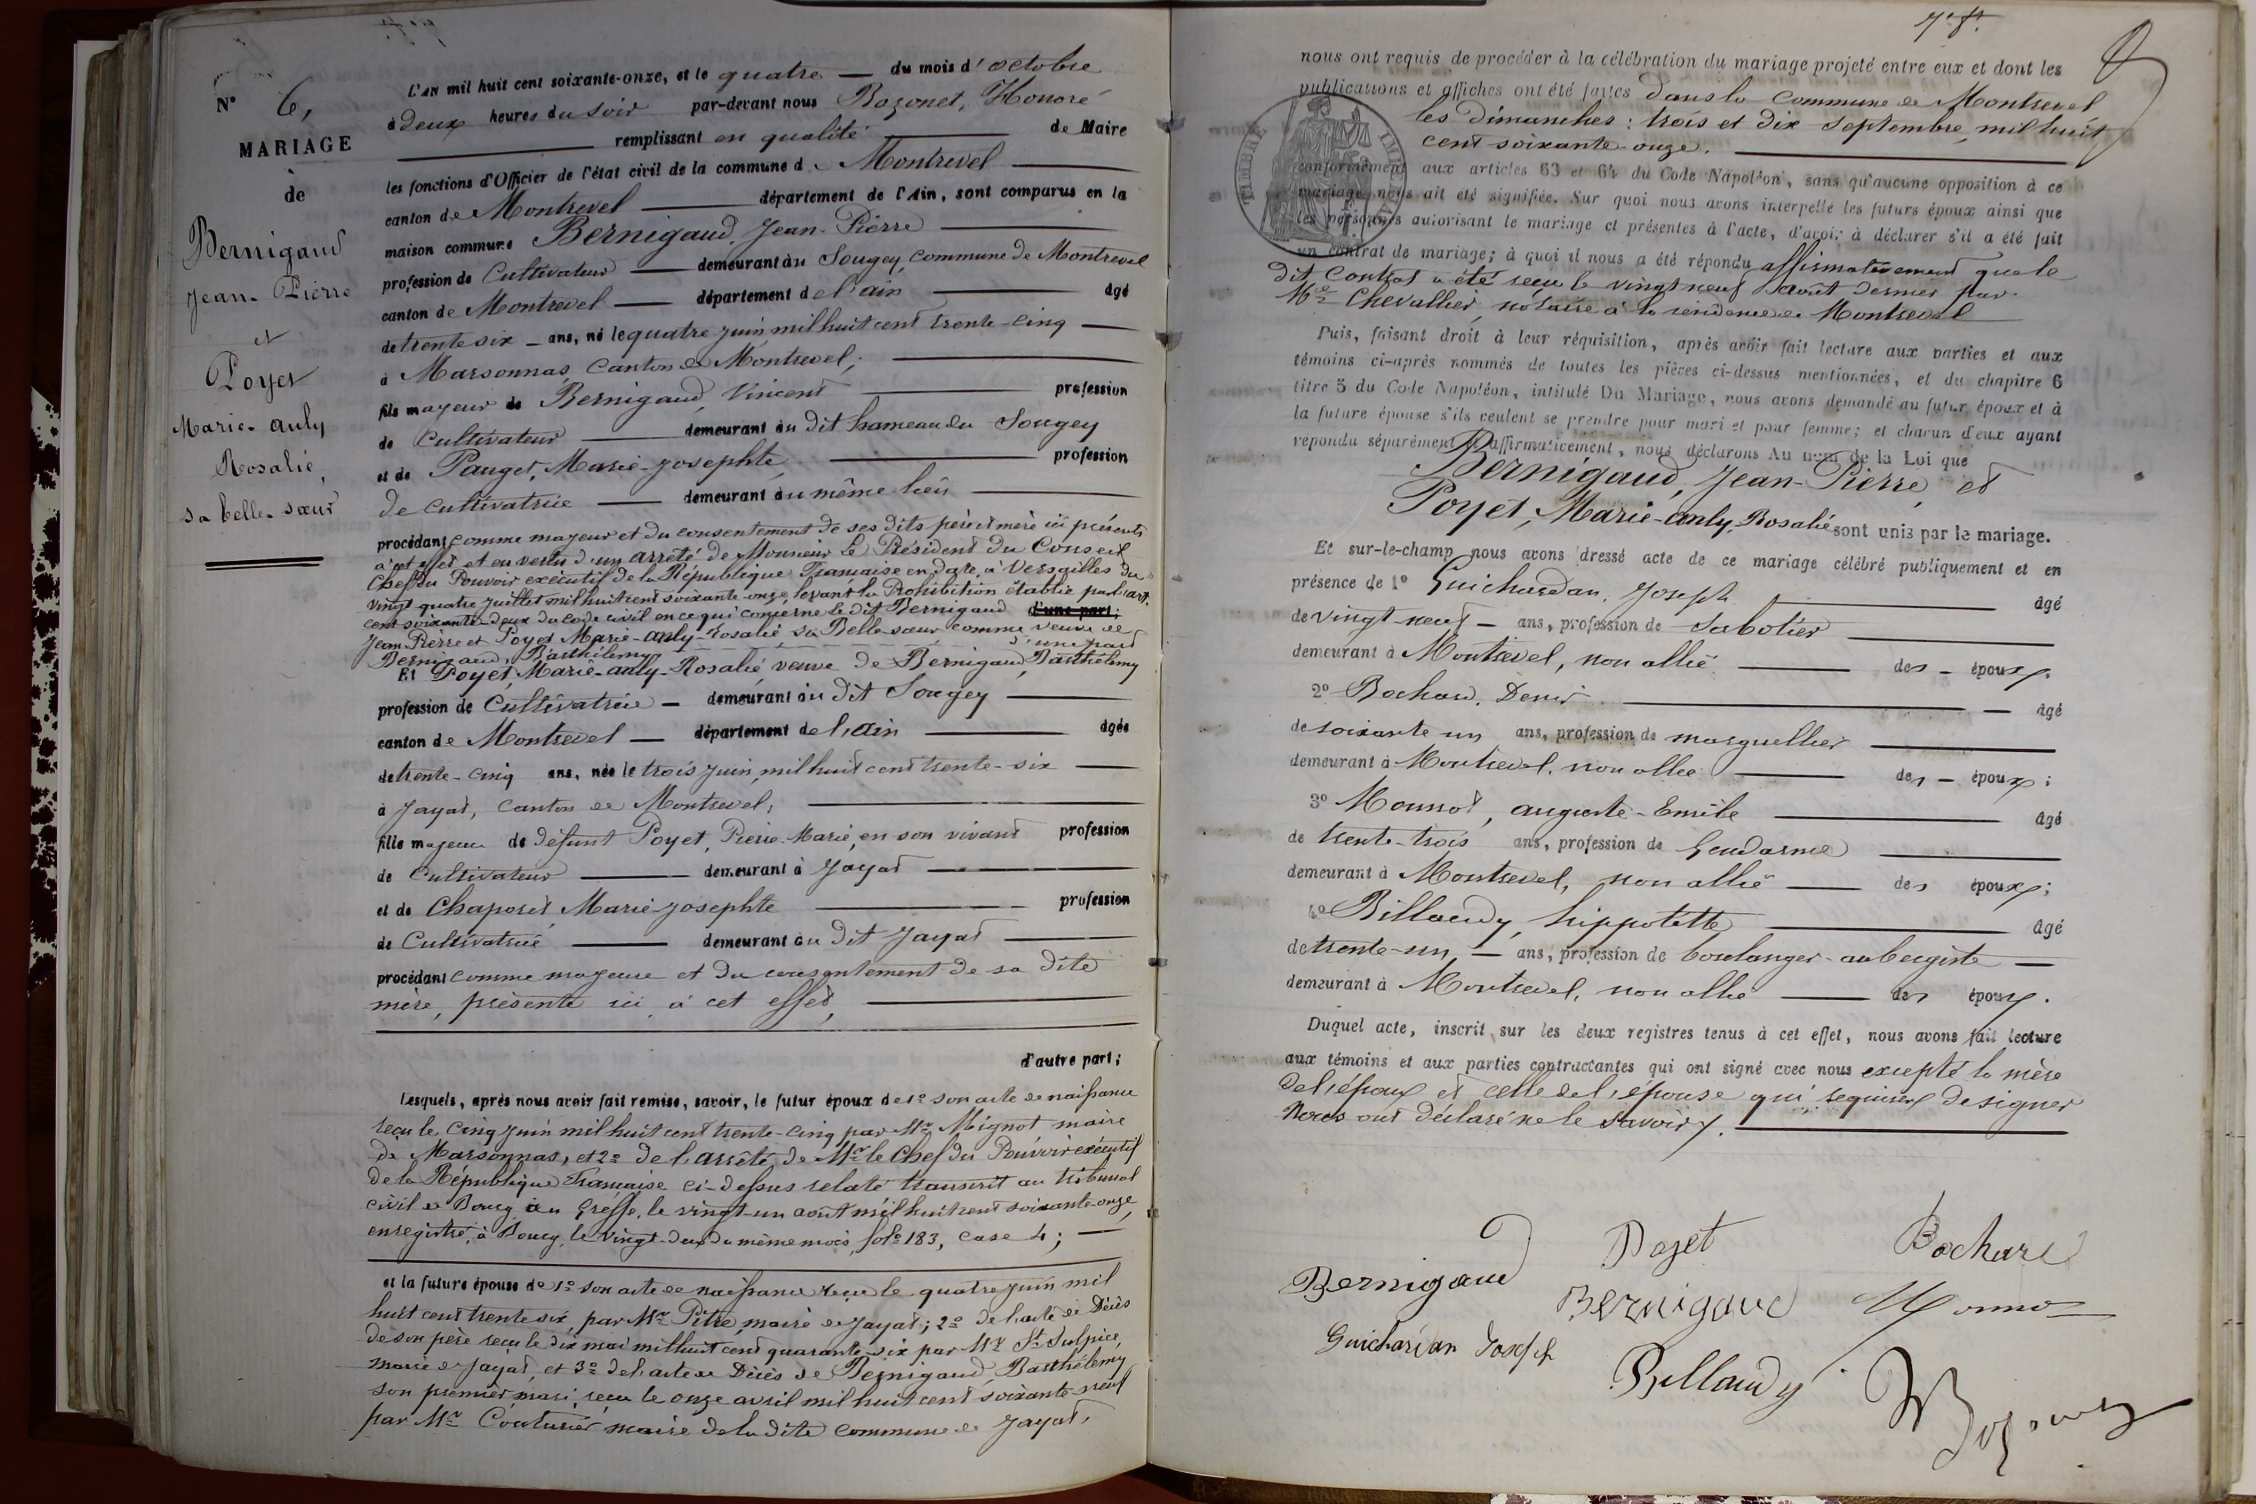 N° 6,
MARIAGE
de
Bernigaud
Jean-Pierre
et
Poyet
Marie-anly
Rosalie,
sa belle-sœur
L'AN mil huit cent soixante-onze, et le quatre — du mois d'octobre
à deux heures du soir par-devant nous Bozonet, Honoré
remplissant en qualité de Maire
les fonctions d'Officier de l'état civil de la commune de Montrevel
canton de Montrevel département de l'Ain, sont comparus en la
maison commune Bernigaud, Jean-Pierre
profession de Cultivateur demeurant au Sougey, commune de Montrevel
canton de Montrevel département de l'ain âgé
de trente six — ans, né le quatre juin mil huit cent trente-cinq
à Marsonnas, canton de Montrevel;
fils majeur de Bernigaud, Vincent profession
de Cultivateur demeurant au dit hameau du Sougey
et de Pauget, Marie-josephte profession
de cultivatrice demeurant au même lieu
procédant comme majeur et du consentement de ses dits père et mère ici présents
à cet effet et en vertu d'un arrêté de Monsieur le Président du Conseil
Chef du Pouvoir exécutif de la République Française en date, à Versailles du
vingt quatre juillet mil huit cent soixante-onze levant la Prohibition établie par l'art.
cent soixante-deux du code civil en ce qui concerne le dit Bernigaud d'une part;
Jean Pierre et Poyet Marie-anly-Rosalie sa Belle-sœur comme veuve de
Bernigaud, Barthélemy d'une part
Et Poyet, Marie-anly-Rosalie, veuve de Bernigaud, Barthélemy
profession de Cultivatrice — demeurant au dit Sougey
canton de Montrevel — département de l'ain âgée
de trente-cinq ans, née le trois juin, mil huit cent trente-six
à Jayat, canton de Montrevel,
fille majeure de défunt Poyet, Pierre-Marie, en son vivant profession
de Cultivateur demeurant à Jayat
et de Chaposet, Marie-josephte profession
de Cultivatrice demeurant au dit Jayat
procédant comme majeure et du consentement de sa dite
mère, présente ici à cet effet,
d'autre part;
Lesquels, après nous avoir fait remise, savoir, le futur époux de 1° son acte de naissance
reçu le cinq juin mil huit cent trente-cinq par Mr Mignot maire
de Marsonnas, et 2° de l'arrêté de Mr le Chef du Pouvoir exécutif
de la République Française ci-dessus relaté transcrit au tribunal
civil de Bourg au Greffe, le vingt-un août mil huit cent soixante-onze,
enregistré à Bourg, le vingt-deux du même mois, fol° 183, case 4;
et la future épouse de 1° son acte de naissance reçu le quatre juin mil
huit cent trente six, par Mr Pitre, maire de Jayat; 2° de l'acte de Décès
de son père reçu le dix mai mil huit cent quarante-six par Mr St Sulpice,
maire de Jayat, et 3° de l'acte de Décès de Bernigaud, Barthélemy
son premier mari, reçu le onze avril mil huit cent soixante-neuf
par Mr Couturier maire de la dite commune de Jayat,
nous ont requis de procéder à la célébration du mariage projeté entre eux et dont les
publications et affiches ont été faites dans la commune de Montrevel
les dimanches: trois et dix septembre, mil huit
cent soixante-onze.
conformément aux articles 63 et 64 du Code Napoléon, sans qu'aucune opposition à ce
mariage nous ait été signifiée. Sur quoi nous avons interpellé les futurs époux ainsi que
les personnes autorisant le mariage et présentes à l'acte, d'avoir à déclarer s'il a été fait
un contrat de mariage; à quoi il nous a été répondu affirmativement que le
dit Contrat a été reçu le vingt neuf août dernier par
Me Chevallier, notaire à la résidence de Montrevel
Puis, faisant droit à leur réquisition, après avoir fait lecture aux parties et aux
témoins ci-après nommés de toutes les pièces ci-dessus mentionnées, et du chapitre 6
titre 5 du Code Napoléon, intitulé Du Mariage, nous avons demandé au futur époux et à
la future épouse s'ils veulent se prendre pour mari et pour femme; et chacun d'eux ayant
répondu séparément et affirmativement, nous déclarons Au nom de la Loi que
Bernigaud, Jean-Pierre et
Poyet, Marie-anly, Rosalie sont unis par le mariage.
Et sur-le-champ nous avons dressé acte de ce mariage célébré publiquement et en
présence de 1° Guichardan, Joseph âgé
de vingt-neuf — ans, profession de Sabotier
demeurant à Montrevel, non allié des — époux.
2° Bochard, Denis âgé
de soixante un ans, profession de marguellier
demeurant à Montrevel, non allié des — époux;
3° Monnot, auguste-Emile âgé
de trente-trois ans, profession de Gendarme
demeurant à Montrevel, non allié des époux;
4° Billoudy, hippolitte âgé
de trente-un — ans, profession de boulanger-aubergiste
demeurant à Montrevel, non allié des époux.
Duquel acte, inscrit sur les deux registres tenus à cet effet, nous avons fait lecture
aux témoins et aux parties contractantes qui ont signé avec nous excepté la mère
de l'époux et celle de l'épouse qui requises de signer
Nous ont déclaré ne le savoir.
Bernigaud Poyet Bochard
Bernigaud Monnot
Guichardan Joseph
Billoudy
Bozonet